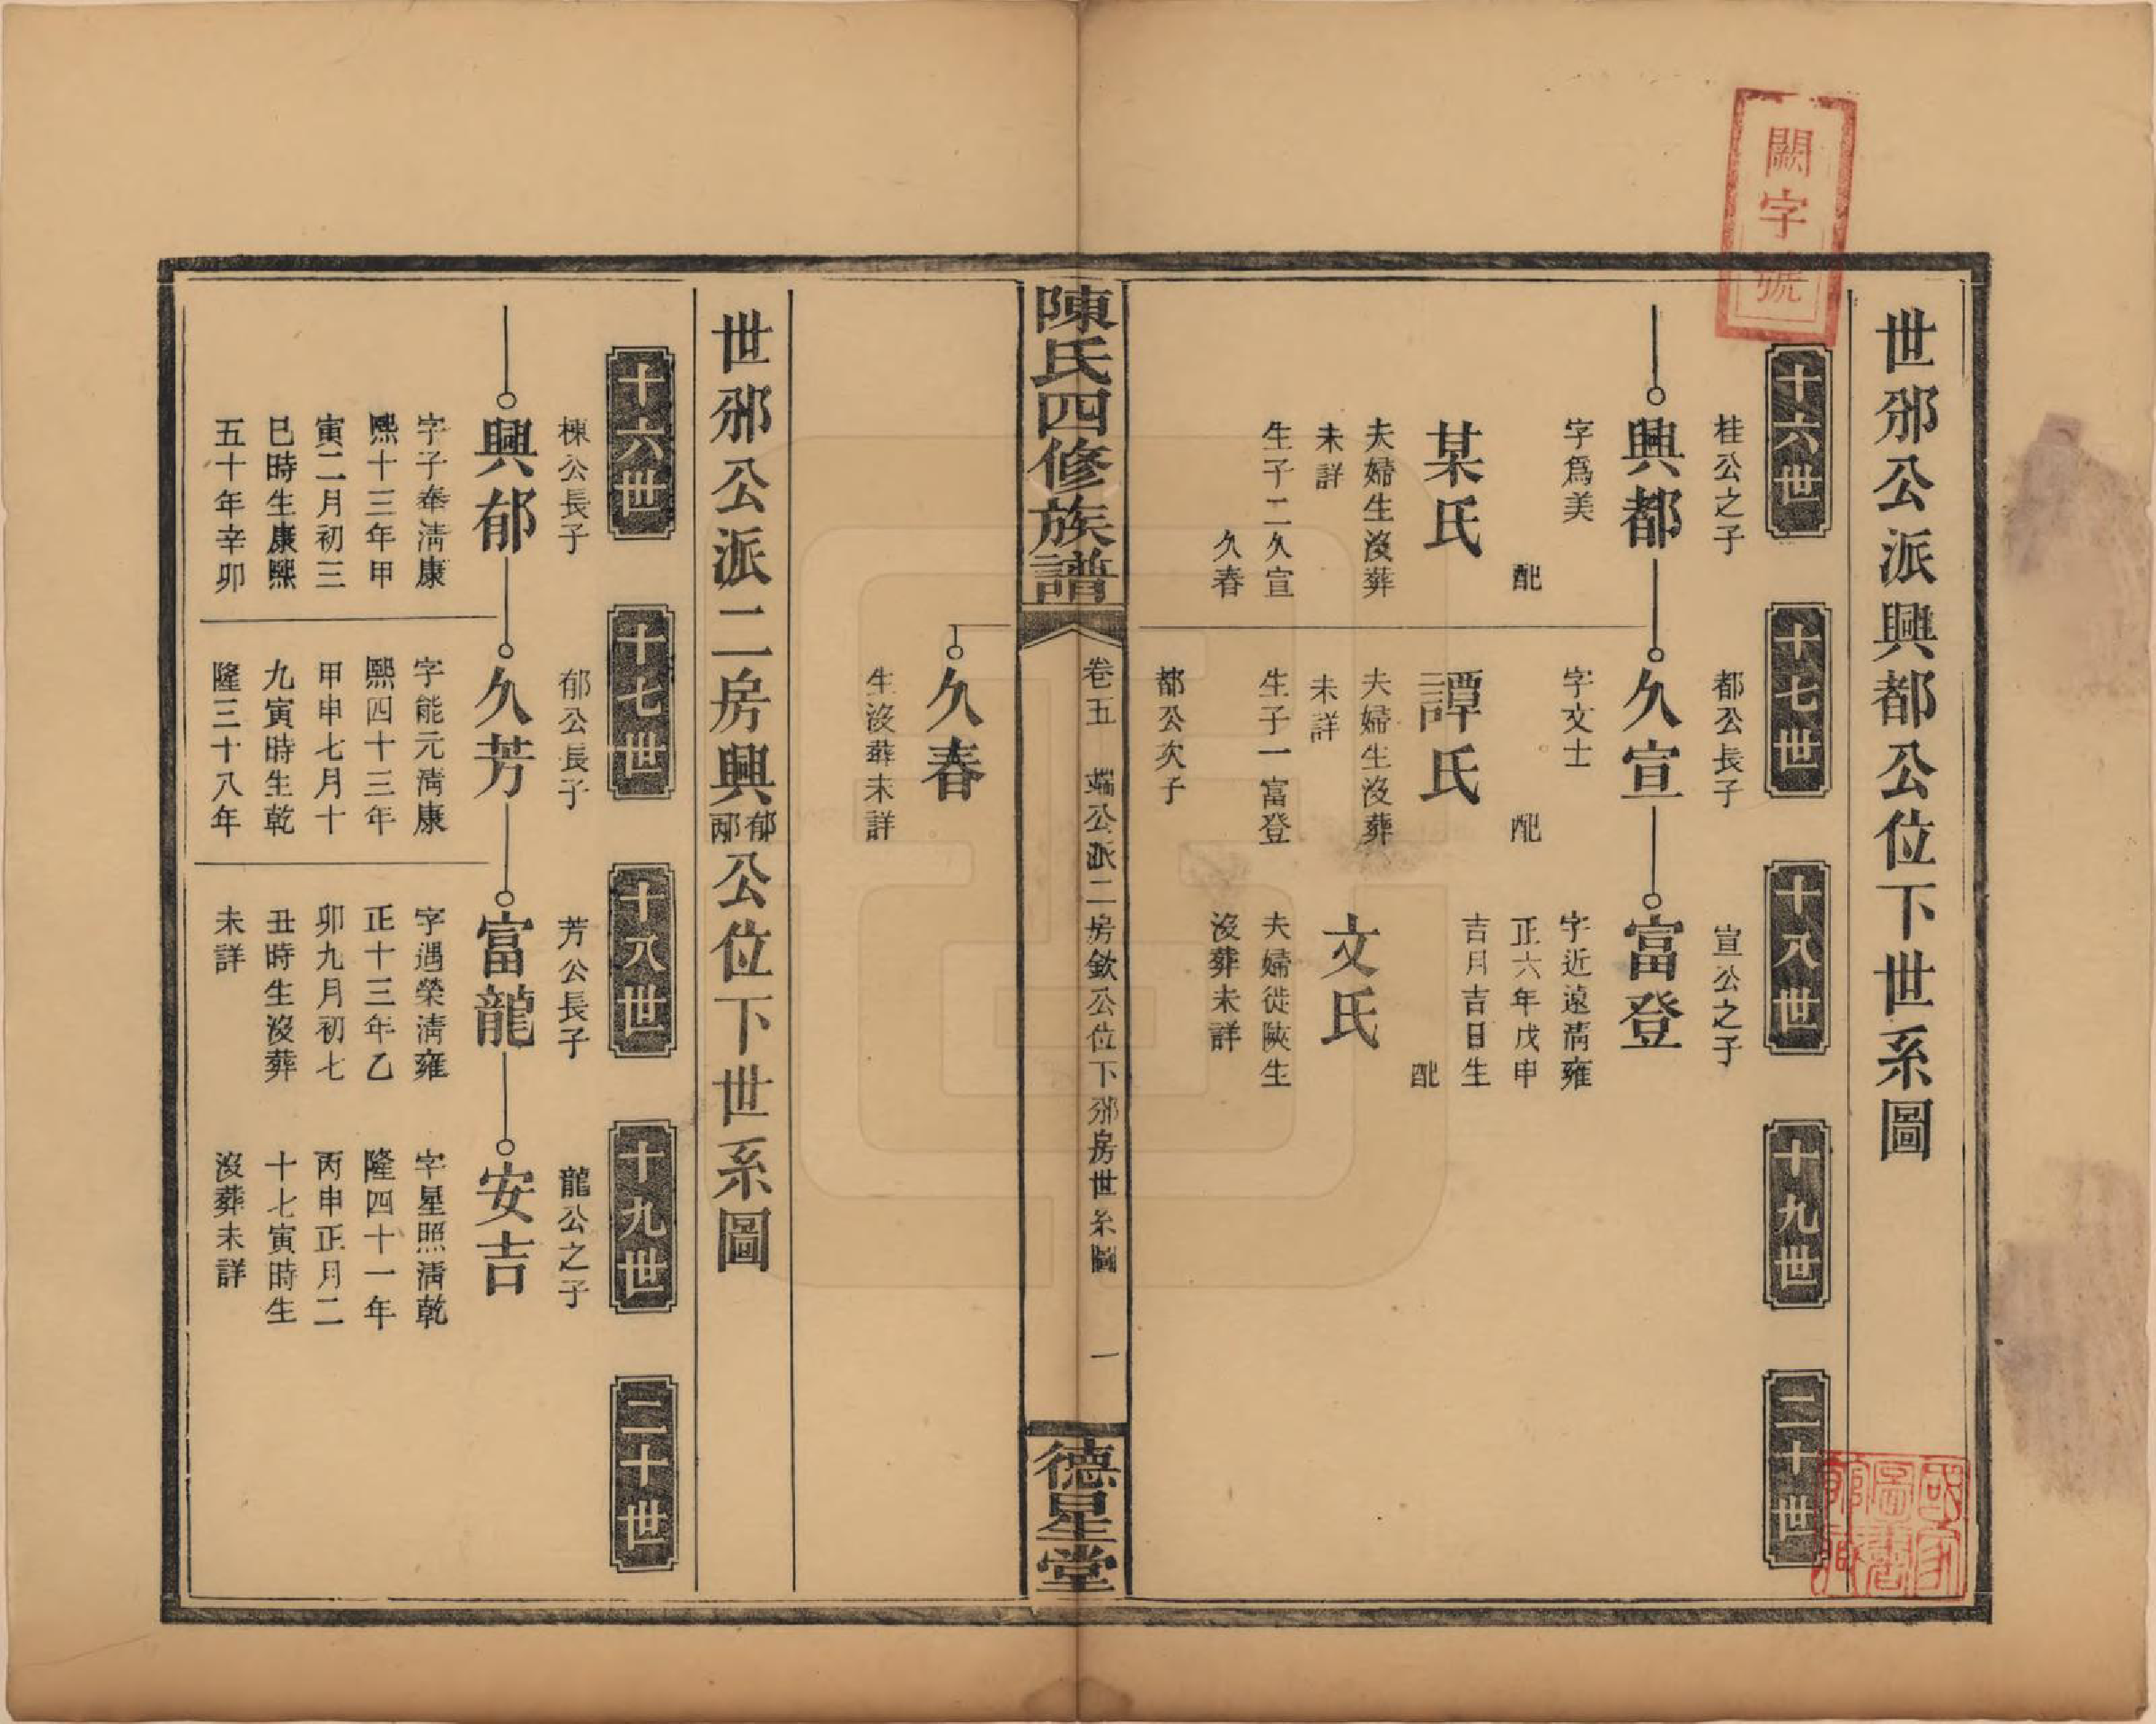 闕字號
世邠公派興都公位下世系圖
十六世
十七世
十八世
十九世
二十世
桂公之子
興都
字爲美
配
某氏
夫婦生沒葬
未詳
生子二久宣
久春
都公長子
久宣
字文士
配
譚氏
夫婦生沒葬
未詳
生子一富登
宣公之子
富登
字近遠清雍
正六年戊申
吉月吉日生
配
文氏
夫婦徙陝生
沒葬未詳
都公次子
陳氏四修族譜
卷五
端公派二房欽公位下邠房世系圖
一
德星堂
久春
生沒葬未詳
世邠公派二房興郁邴公位下世系圖
十六世
十七世
十八世
十九世
二十世
棟公長子
興郁
字子奉清康
熙十三年甲
寅二月初三
巳時生康熙
五十年辛卯
郁公長子
久芳
字能元清康
熙四十三年
甲申七月十
九寅時生乾
隆三十八年
芳公長子
富龍
字遇榮清雍
正十三年乙
卯九月初七
丑時生沒葬
未詳
龍公之子
安吉
字星照清乾
隆四十一年
丙申正月二
十七寅時生
沒葬未詳
國家
圖書
館藏